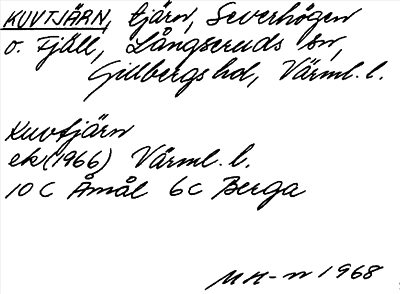 KUVTJÄRN, tjärn, Severhögen
o. Fjäll, Långseruds sn,
Gillbergs hd, Värml. l.
Kuvtjärn
ek (1966) Värml. l.
10 C Åmål 6 C Berga
1968